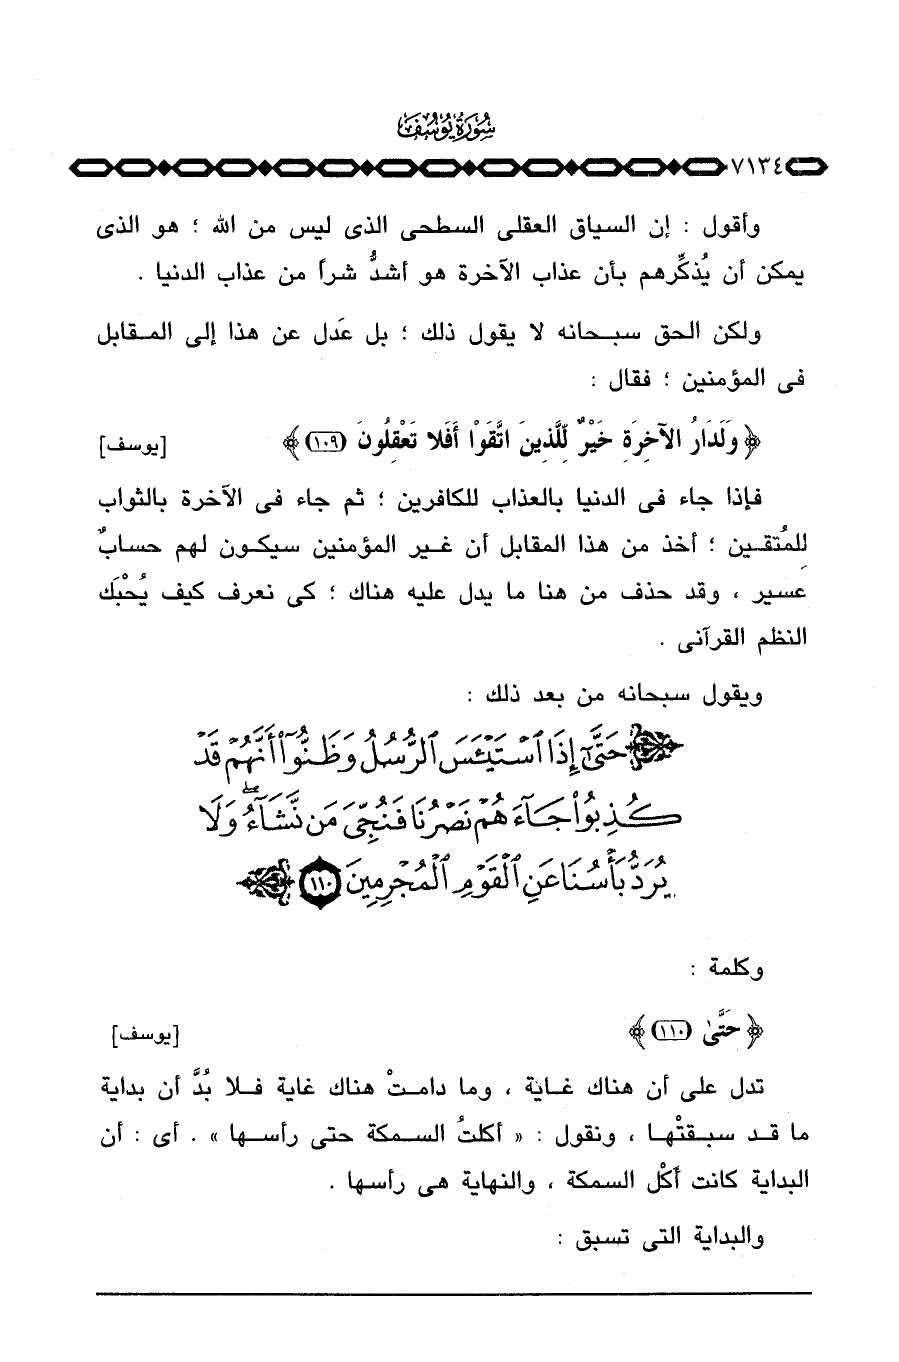 سُورَةُ يُوسُفَ
٧١٣٤
وأقول : إن السياق العقلى السطحى الذى ليس من الله ؛ هو الذى
يمكن أن يُذكِّرهم بأن عذاب الآخرة هو أشدُّ شراً من عذاب الدنيا .
ولكن الحق سبحانه لا يقول ذلك ؛ بل عَدل عن هذا إلى المقابل
فى المؤمنين ؛ فقال :
﴿ وَلَدَارُ الآخِرَةِ خَيْرٌ لِّلَّذِينَ اتَّقَوْا أَفَلا تَعْقِلُونَ (١٠٩) ﴾ [يوسف]
فإذا جاء فى الدنيا بالعذاب للكافرين ؛ ثم جاء فى الآخرة بالثواب
للمُتقين ؛ أخذ من هذا المقابل أن غير المؤمنين سيكون لهم حسابٌ
عسير ، وقد حذف من هنا ما يدل عليه هناك ؛ كى نعرف كيف يُحْبَك
النظم القرآنى .
ويقول سبحانه من بعد ذلك :
حَتَّىٰٓ إِذَا ٱسْتَيْـَٔسَ ٱلرُّسُلُ وَظَنُّوٓا۟ أَنَّهُمْ قَدْ
كُذِبُوا۟ جَآءَهُمْ نَصْرُنَا فَنُجِّىَ مَن نَّشَآءُ ۖ وَلَا
يُرَدُّ بَأْسُنَا عَنِ ٱلْقَوْمِ ٱلْمُجْرِمِينَ ١١٠
وكلمة :
﴿ حَتَّىٰ (١١٠) ﴾ [يوسف]
تدل على أن هناك غاية ، وما دامتْ هناك غاية فلا بُدَّ أن بداية
ما قد سبقتْها ، ونقول : « أكلتُ السمكة حتى رأسها » . أى : أن
البداية كانت أَكْل السمكة ، والنهاية هى رأسها .
والبداية التى تسبق :